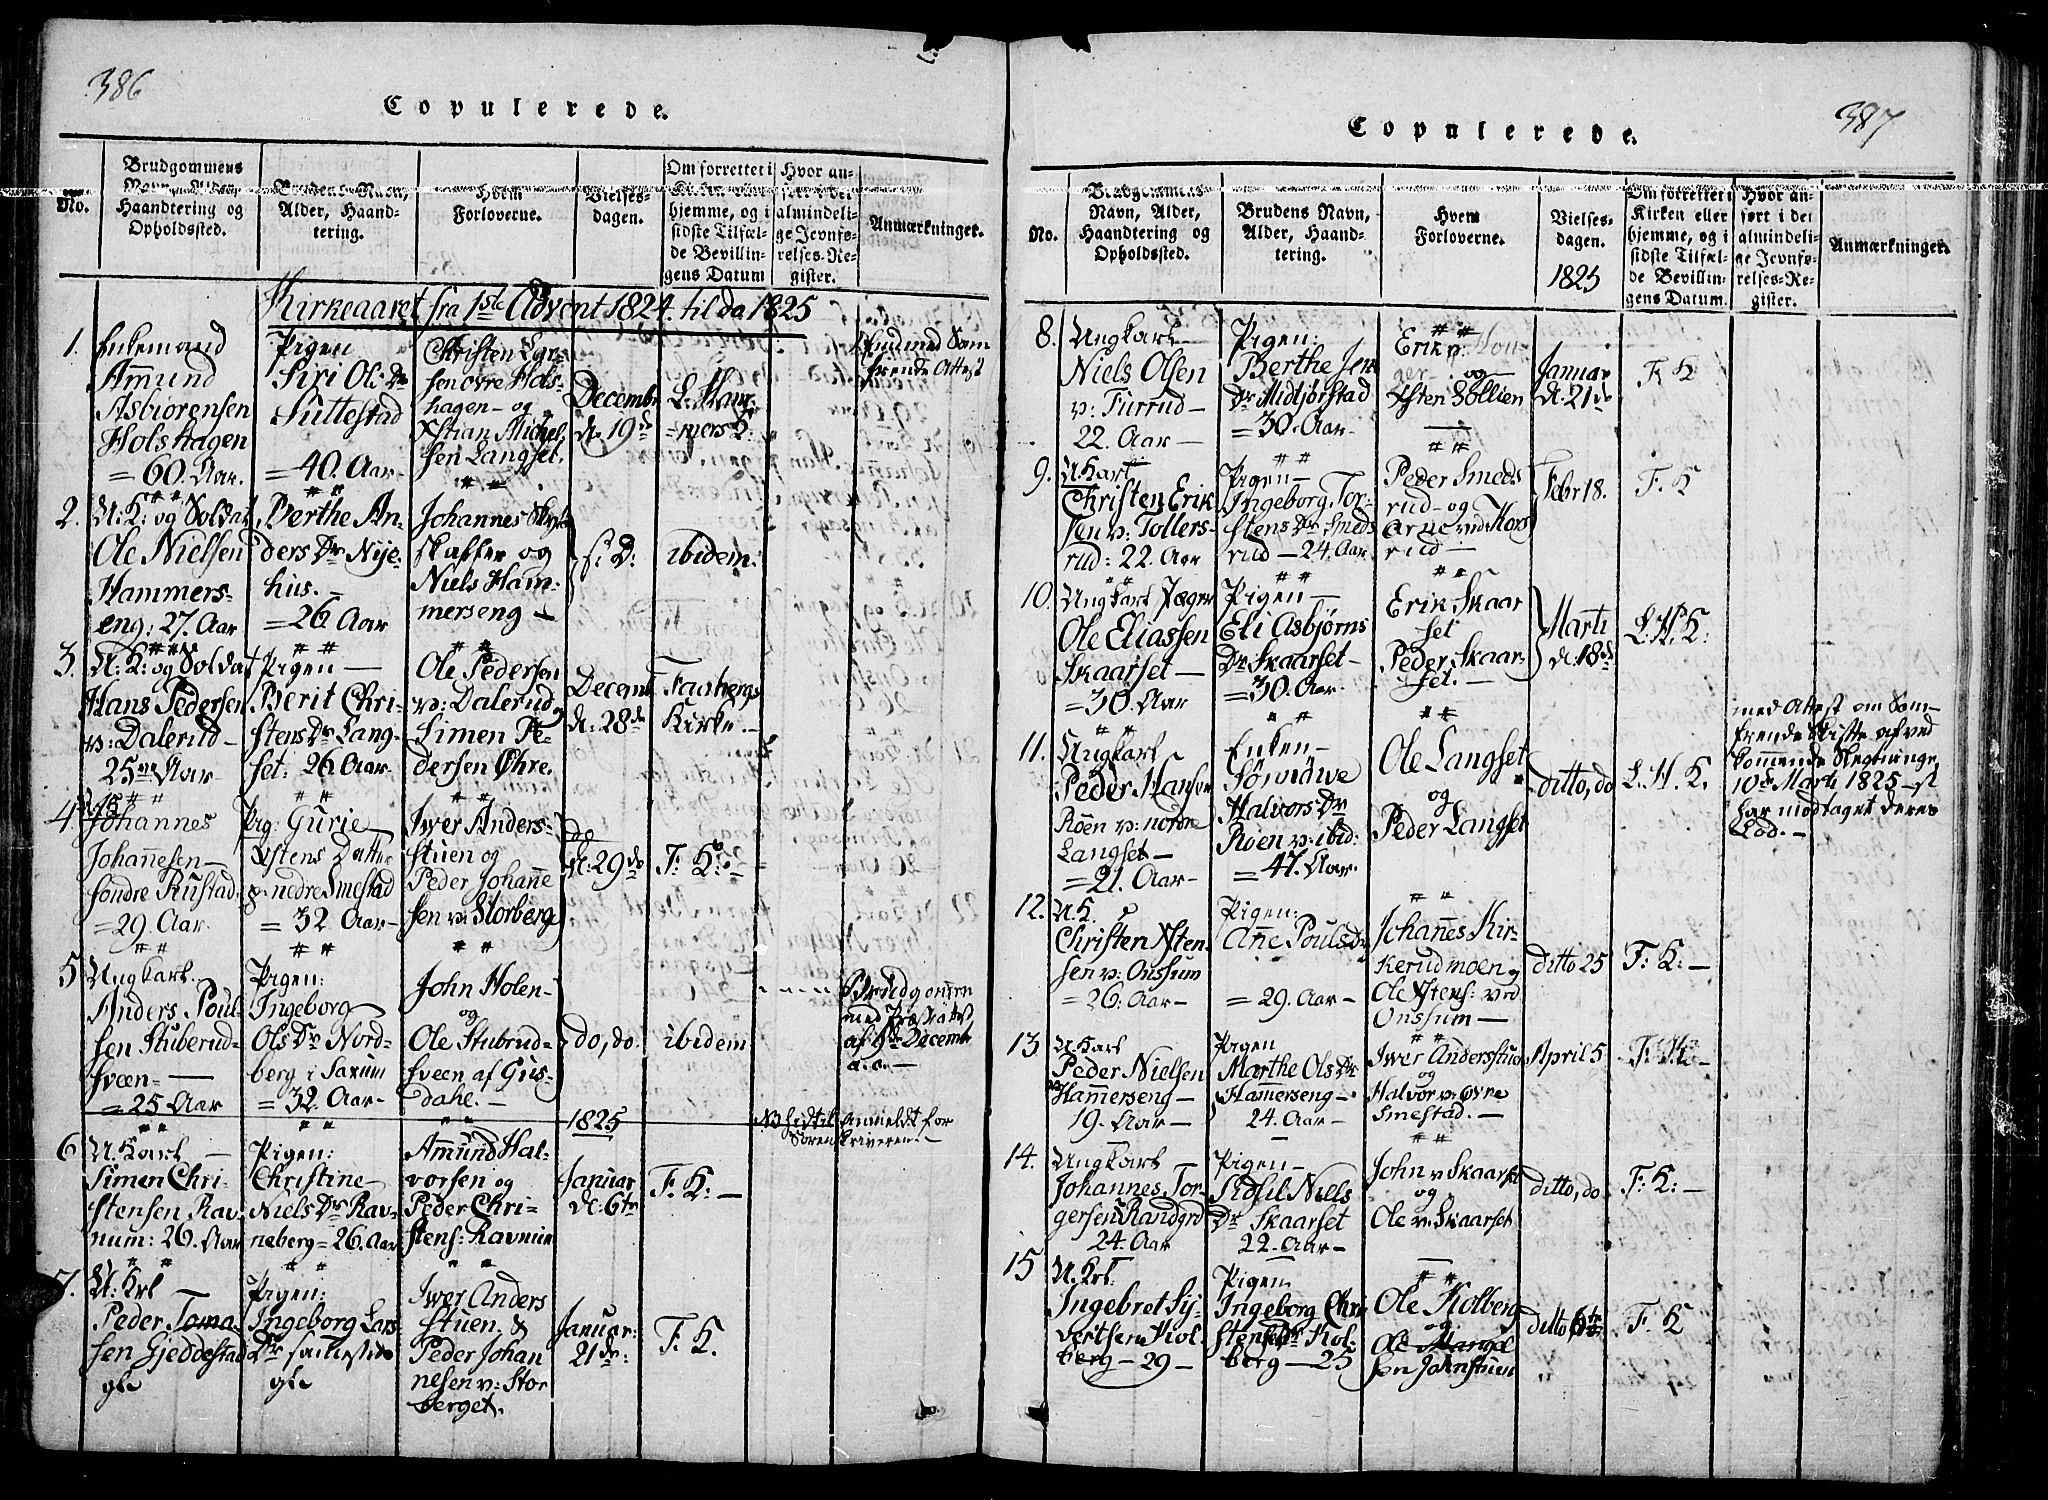 386
Copulerede.
No.
Brudgommens
Navn, Alder,
Haandtering og
Opholdssted.
Brudens Navn,
Alder, Haand-
tering.
Hvem
Forloverne.
Vielses-
dagen.
Om forrettet i
Kirken eller
hjemme, og i
sidste Tilfæl-
de Bevillin-
gens Datum
Hvor an-
ført i det
almindeli-
ge Jevnfø-
relses-Re-
gister.
Anmærkninger.
Kirkeaaret fra 1ste Advent 1824. til do 1825
1.
Enkemand
Amund
Asbiørensen
Holshagen
= 60. Aar.
Pigen
Siri Ols Dr
Suttestad
= 40. Aar
Christen Lar-
sen øvre Hols-
hagen - og
Xstian Michel
sen Langset.
Decembr
d. 19de
L. Ham-
mers K:
2.
U: K: og Soldat
Ole Nielsen
Hammers-
eng: 27. Aar
Berthe An-
ders Dr Nye-
hus. -
= 26. Aar
Johannes
og
Niels Ham-
merseng -
s: D:
ibidem:
3.
U: K: og Soldat
Hans Pedersen
v: Dalerud -
25 Aar
Pigen -
Berit Chri-
stens Dr Lang-
set: 26. Aar
Ole Pedersen
v: Dalerud og
Simen Pe-
dersen Øhre.
Decemb
d: 28de
Faabergs
Kirke. -
4.
Johannes
Johannesen -
søndre Rustad.
= 29. Aar.
Pig: Gurie
Estens Datter
v: nedre Smestad
= 32 Aar -
Iwer Anders-
stuen og
Peder Johanne
sen v: Storberge
do
d: 29de
F: K: -
5
Ungkarl.
Anders Poul-
sen Stuberud-
sveen -
= 25 Aar
Pigen:
Ingeborg
Ols Dr Nord-
berg i Saxum
= 32. Aar -
John Holen -
og
Ole Stubrud-
sveen af Gus-
dahl. -
do, do.
ibidem
Brudgommen
med
af 9de Decembr
a. c. -
1825
Anmeldt for
Sorenskriveren. -
6
U. Karl -
Simen Chri-
stensen Rav-
num: 26. Aar
Pigen:
Christine
Niels Dr Rav-
neberg = 26. Aar
Amund Hal-
vorsen og
Peder Chri-
stens: Ravnum
Januar
d: 6te
F. K: -
7.
U: Krl
Peder Toma
sen Gjeddestad
Pigen:
Ingeborg Lars
Dr
Iwer Anders
stuen, &
Peder Johan
nesen v: Stor
berget.
Januar:
21de:
F. K.
387
Copulerede.
No.
Brudgommens
Navn, Alder,
Haandtering og
Opholdssted.
Brudens Navn,
Alder, Haand-
tering.
Hvem
Forloverne.
Vielses-
dagen.
1825
Om forrettet i
Kirken eller
hjemme, og i
sidste Tilfæl-
de Bevillin-
gens Datum.
Hvor an-
ført i det
almindeli-
ge Jevnfø-
relses-Re-
gister.
Anmærkninger.
8.
Ungkarl -
Niels Olsen
v: Furrud -
22. Aar -
Pigen:
Berthe Jens
Dr Midtjørstad
= 30. Aar -
Erik v: Hou-
ger - og -
Esten Sollien
Januar
d. 21de
F K
9.
U. Karl
Christen Erik
sen v: Tollers-
rud: 22. Aar
Pigen -
Ingeborg Tor-
stens Dr Smeds
rud - 24. Aar
Peder Smeds
rud - og
Arne
rud -
Febr 18.
F. K
10.
Ungkarl Jæger
Ole Eliassen
Skaarset -
= 30. Aar
Pigen -
Eli Asbjørns
Dr Skaarset -
= 30. Aar.
Erik Skaar
set
Peder Skaar-
set. -
Marti
d. 18de
L. H. K:
11.
Ungkarl
Peder Hansen
Røen v: nordre
Langset -
= 21. Aar -
Enken -
Halvors Dr
Røen v: ibid:
= 47. Aar.
Ole Langset
og
Peder Langset
ditto, do
L. H. K.
med Attest om Sam-
frende Skifte af ved
kommende
10de Marti 1825
har modtaget deres
Lod. -
12.
U. K.
Christen Xsten-
sen v: Onssum
= 26. Aar -
Pigen:
Anne Pouls Dr
= 29. Aar -
Johannes Kir-
kerudmoen og
Ole Xstens: ved
Onssum -
ditto 25
F: K: -
13
U. Karl
Peder Nielsen
v. Hammerseng -
19. Aar -
Pigen
Marthe Ols Dr
Hammerseng -
24. Aar -
Iwer Andersstuen
og
Halvor v: øvre
Smestad. -
April 5
14.
Ungkarl -
Johannes Tor-
gersen Randgrd
24. Aar
Pigen -
Kidsil Niels
Dr Skaarset
22. Aar -
John v. Skaarset
og
Ole v: Skaarset
ditto, do
F: K: -
15
U. Krl.
Ingebret Sy-
vertsen Kol-
berg - 29 -
Pigen
Ingeborg Chri
stens Dr Kol-
berg - 25
Ole Kolberg
og
Ole
sen Jahrstuen
ditto
F. K